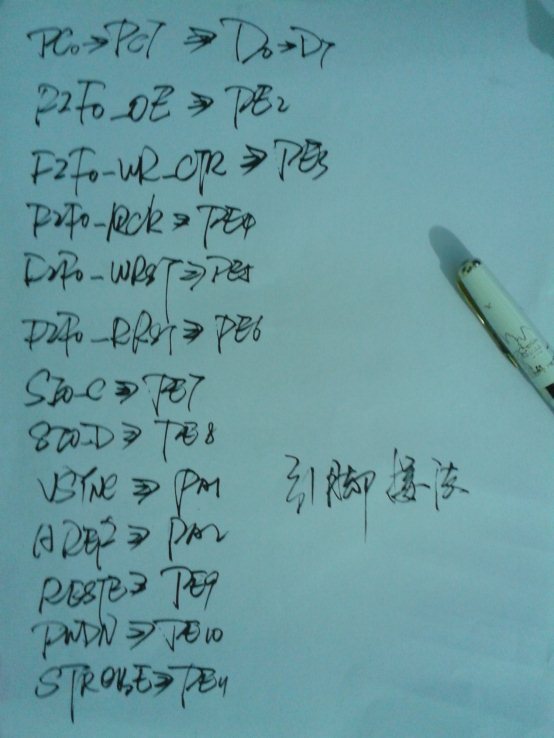 PC0→PC7 => D0→D7
FIFO_OE => PE2
FIFO_WR_CTR => PE3
FIFO_RCK => PE4
FIFO_WRST => PE5
FIFO_RRST => PE6
SIO_C => PE7
SIO_D => PE8
VSYNC => PA1
引脚接法
HREF => PA2
RESTE => PE9
PWDN => PE10
STROBE => PE11